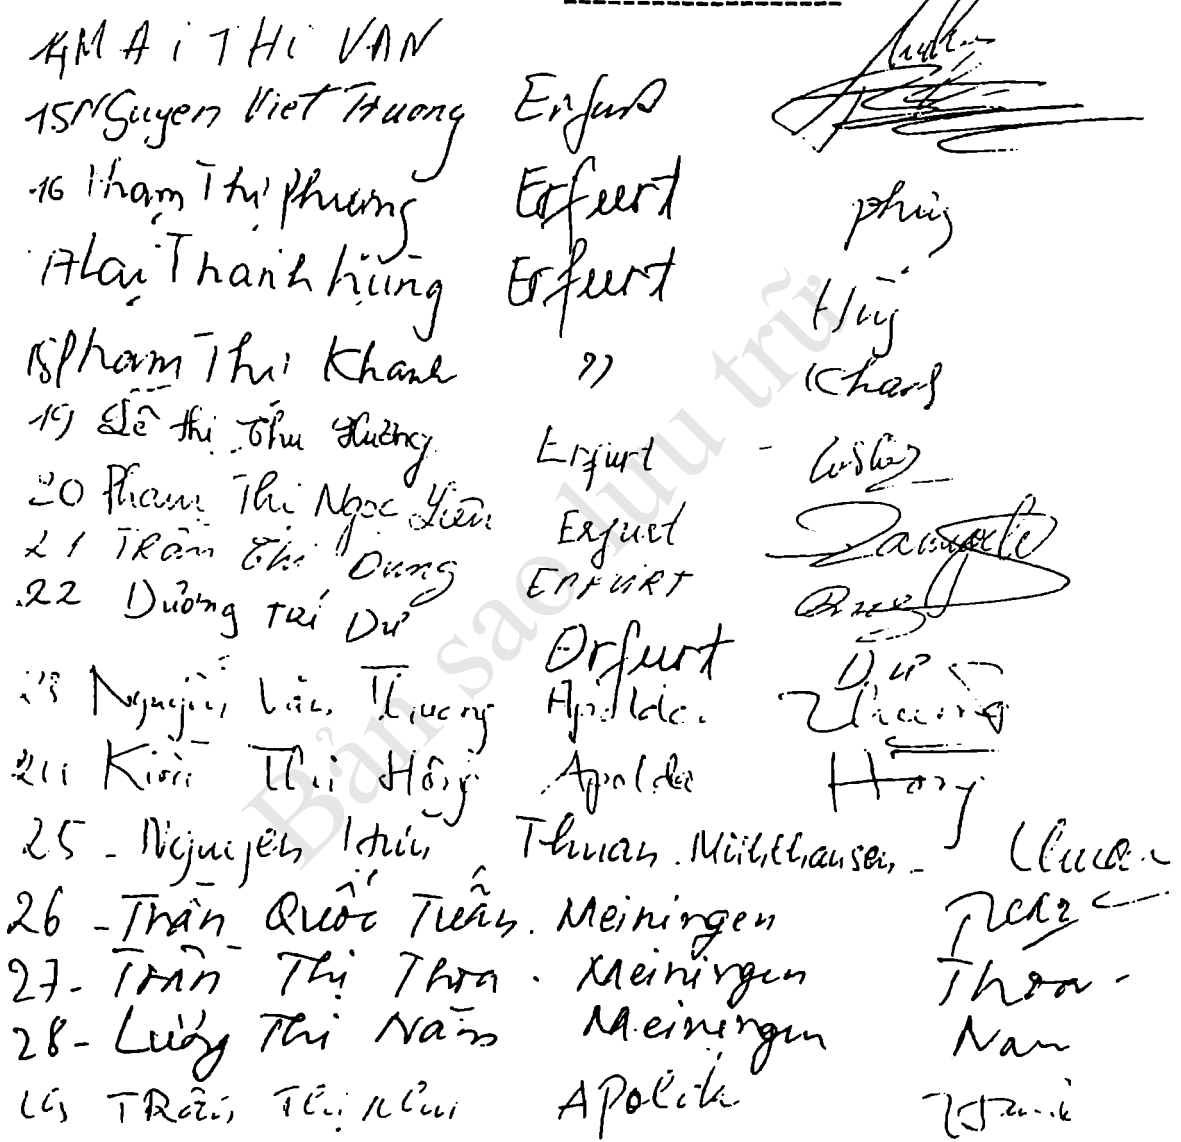 14 MAi THi VAN
15 Nguyen Viet Huong Erfurt
16 Phạm Thị Phương Erfurt Phương
17 Lại Thanh hùng Erfurt Hùng
18 Phạm Thị Khanh " Khanh
19 Lê thị Thu Hường Erfurt
20 Pham Thị Ngọc Liên Erfurt
21 TRần Thị Dung ERFURT
22 Dương Tai Dư Erfurt Dư
23 Nguyễn Văn Thương Apolda Thương
24 Kiều Thị Hồng Apolda Hồng
25 - Nguyen Hữu Thuan. Mühlhausen - Thuan
26 - Trần Quốc Tuấn. Meiningen
27 - Trần Thị Thoa. Meiningen Thoa -
28 - Lường Thị Năm Meiningen Nam
TRần Thị
Bản sao lưu trữ